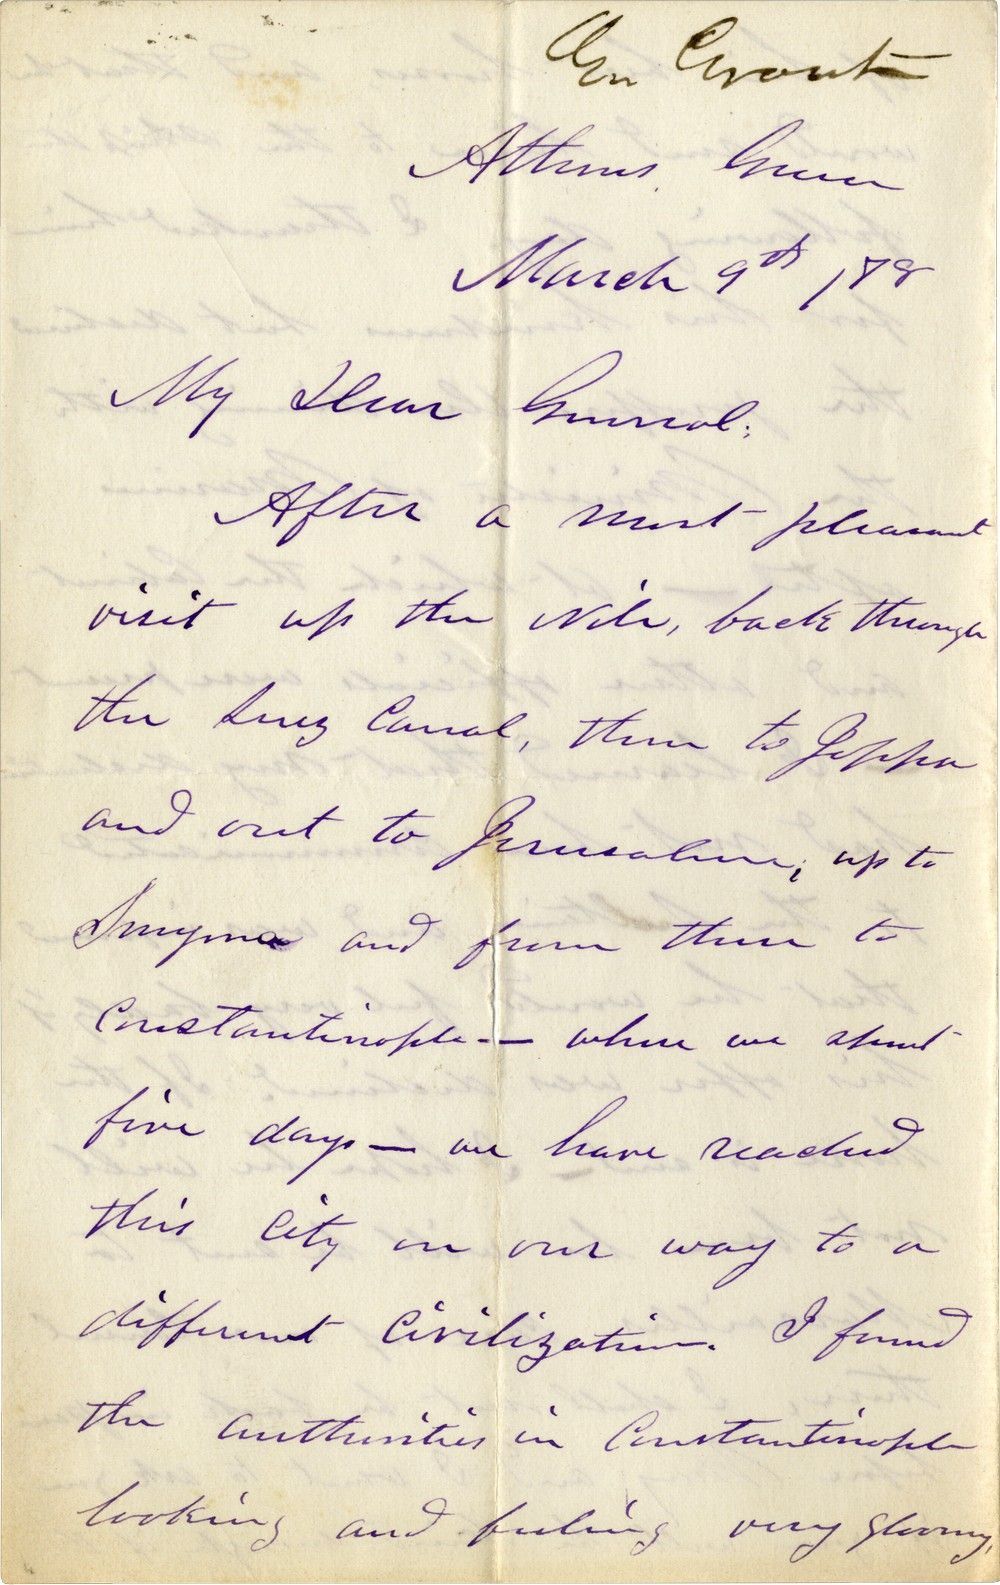 Gen Grant
Athens, Greece
March 9th /78
My Dear General:
After a most pleasant
visit up the Nile, back through
the Suez Canal, then to Joppa
and out to Jerusalem; up to
Smyrna and from there to
Constantinople — where we spent
five days — we have reached
this city on our way to a
different civilization. I found
the authorities in Constantinople
looking and feeling very gloomy,